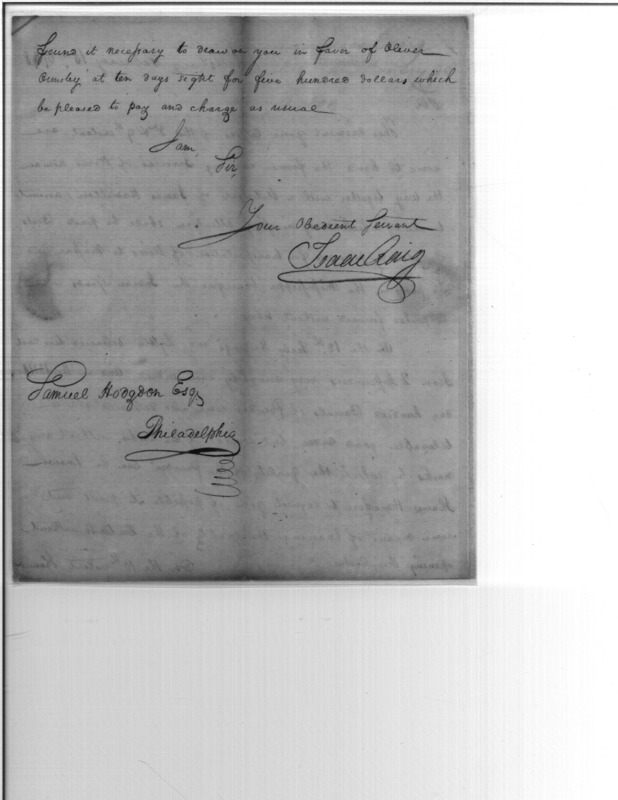 found it necessary to draw on you in favor of Oliver
Ormsby at ten days sight for five hundred dollars which
be pleased to pay and charge as usual
I am,
Sir,
Your Obedient Servant
Isaac Craig
Samuel Hodgdon Esq.
Philadelphia